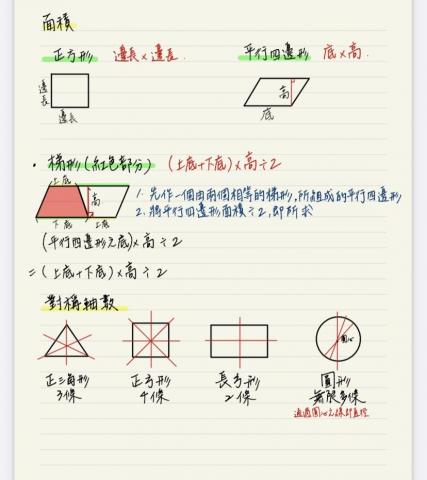 面積
正方形 邊長×邊長.
平行四邊形 底×高.
邊長
邊長
高
底
・梯形(紅色部分) (上底+下底)×高÷2
上底
高
下底 上底
1. 先作一個由兩個相等的梯形,所組成的平行四邊形
2. 將平行四邊形面積÷2,即所求
(平行四邊形之底)×高÷2
=(上底+下底)×高÷2
對稱軸數
圓心
正三角形 正方形 長方形 圓形
3條 4條 2條 無限多條
通過圓心之線即直徑